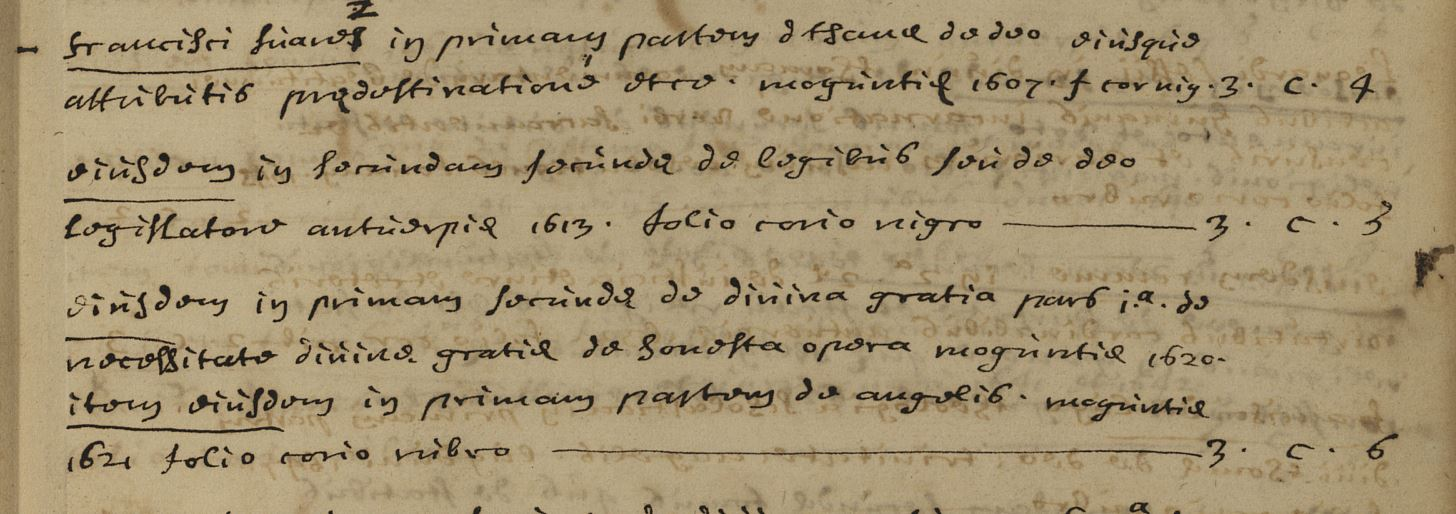 - francisci suarez in primam partem d thomę de deo eiusque
attributis prędestinatione etce. moguntię 1607. f cor nig. 3. C. 4
eiusdem in secundam secundę de legibus seu de deo
legislatore antuerpię 1613. folio corio nigro — 3. C. 3
eiusdem in primam secundę de diuina gratia pars i.a. de
necessitate diuinę gratię de honesta opera moguntię 1620.
item eiusdem in primam partem de angelis. moguntię
1621 folio corio rubro — 3. C. 6